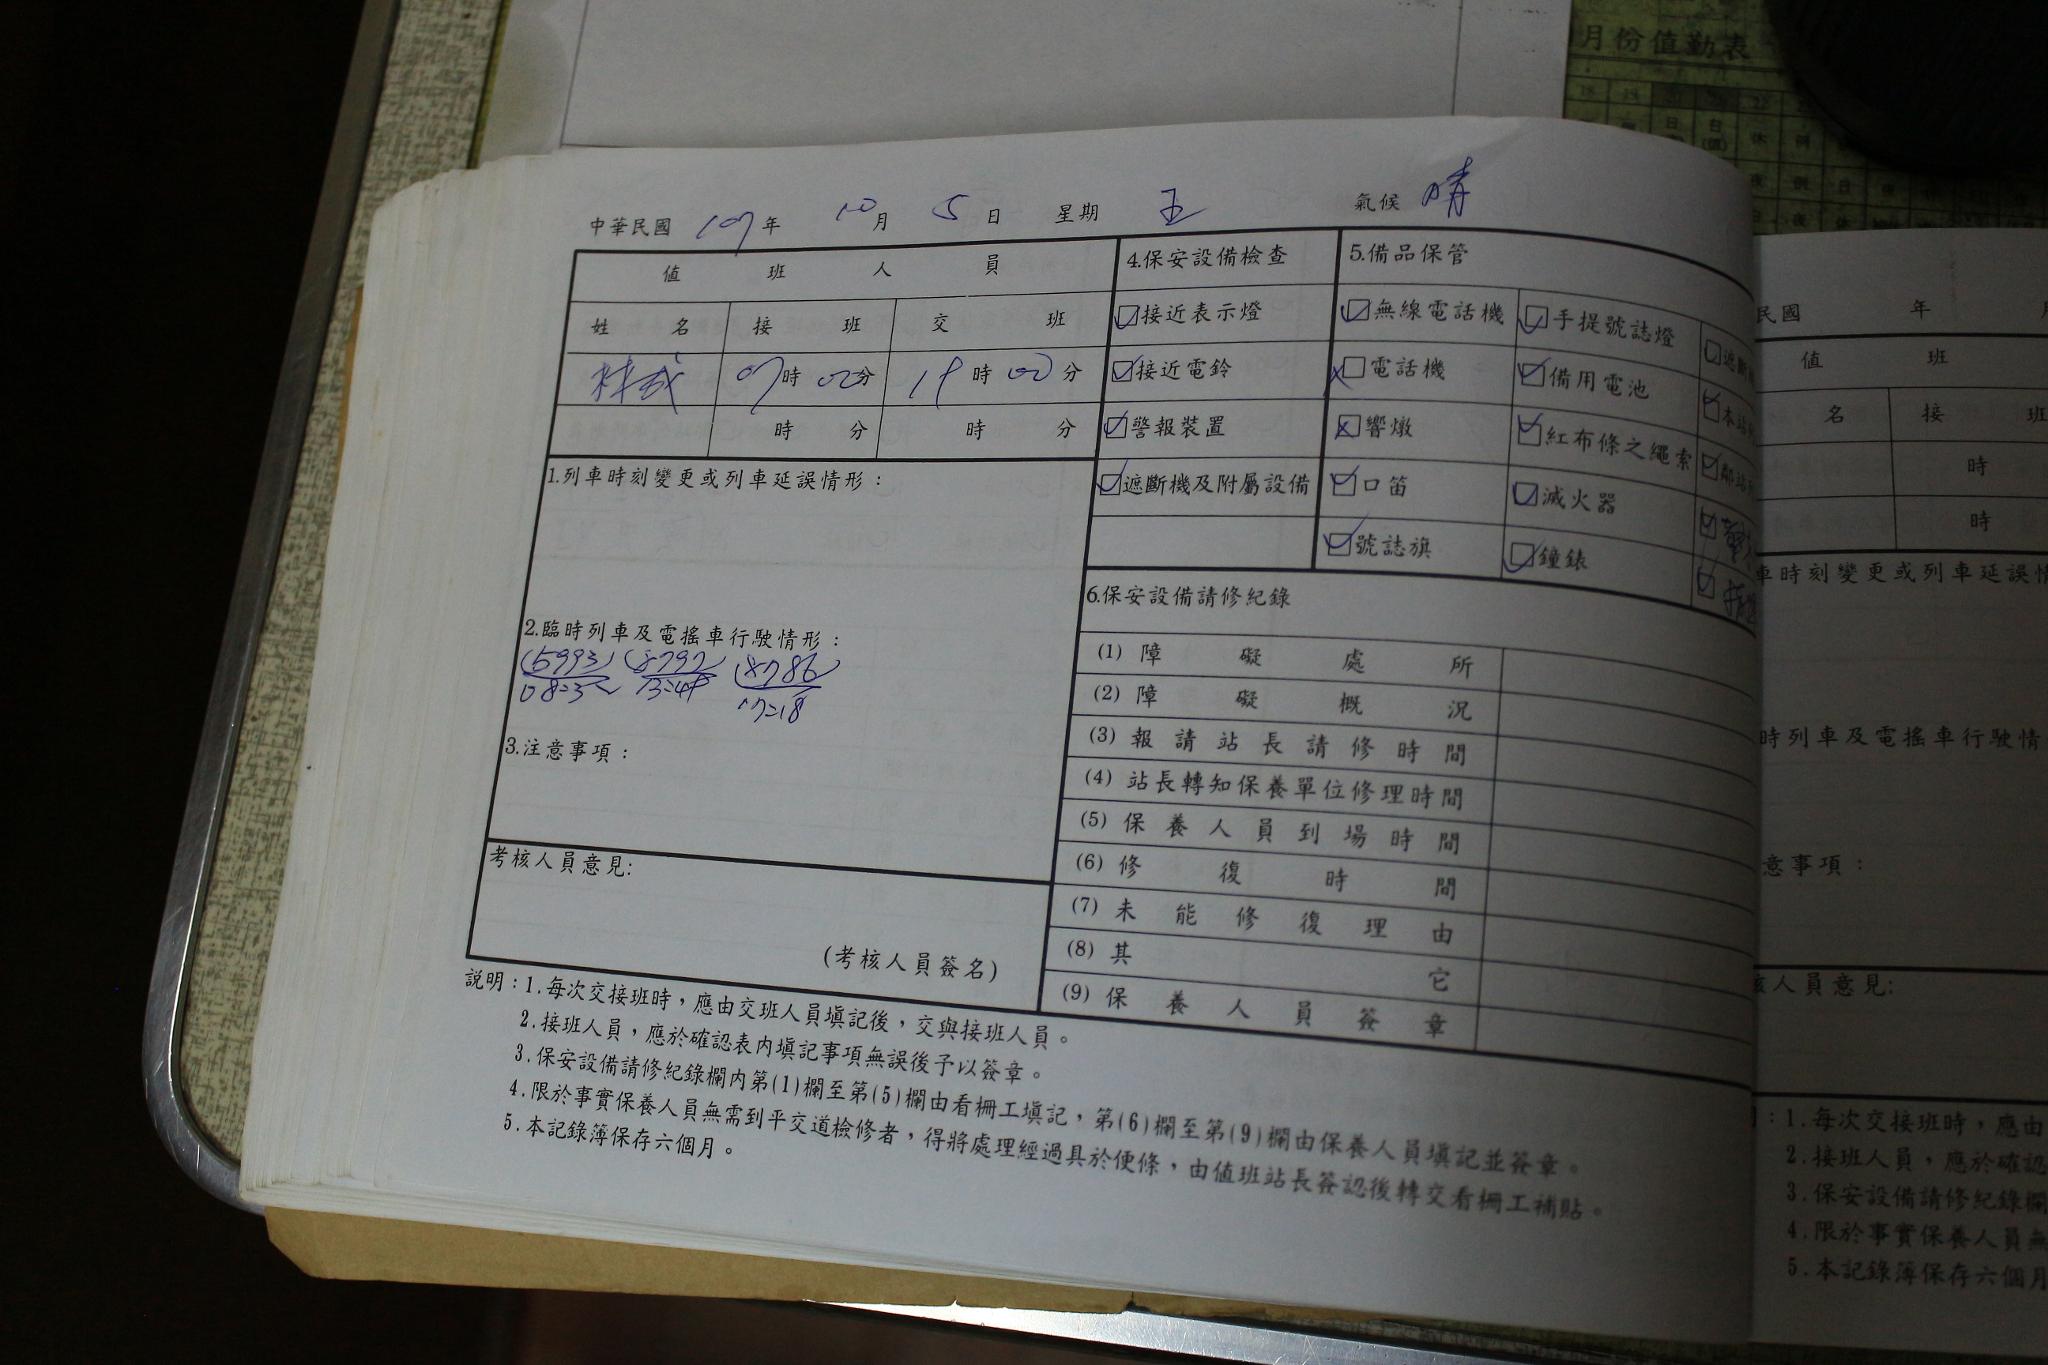 月份值勤表
中華民國 107 年 10 月 5 日 星期 五 氣候 晴
值班人員
姓名 接班 交班
07時00分 19時00分
時 分 時 分
1.列車時刻變更或列車延誤情形：
2.臨時列車及電搖車行駛情形：
3.注意事項：
考核人員意見:
(考核人員簽名)
4.保安設備檢查
接近表示燈
接近電鈴
警報裝置
遮斷機及附屬設備
5.備品保管
無線電話機
電話機
響燉
口笛
號誌旗
手提號誌燈
備用電池
紅布條之繩索
滅火器
鐘錶
6.保安設備請修紀錄
(1) 障礙處所
(2) 障礙概況
(3) 報請站長請修時間
(4) 站長轉知保養單位修理時間
(5) 保養人員到場時間
(6) 修復時間
(7) 未能修復理由
(8) 其它
(9) 保養人員簽章
說明：1.每次交接班時，應由交班人員填記後，交與接班人員。
2.接班人員，應於確認表內填記事項無誤後予以簽章。
3.保安設備請修紀錄欄內第(1)欄至第(5)欄由看柵工填記，第(6)欄至第(9)欄由保養人員填記並簽章。
4.限於事實保養人員無需到平交道檢修者，得將處理經過具於便條，由值班站長簽認後轉交看柵工補貼。
5.本記錄簿保存六個月。
民國 年
值 班
名 接 班
時
時
車時刻變更或列車延誤情
時列車及電搖車行駛情
意事項：
人員意見:
1.每次交接班時，應由
2.接班人員，應於確認
3.保安設備請修紀錄欄
4.限於事實保養人員無
5.本記錄簿保存六個月